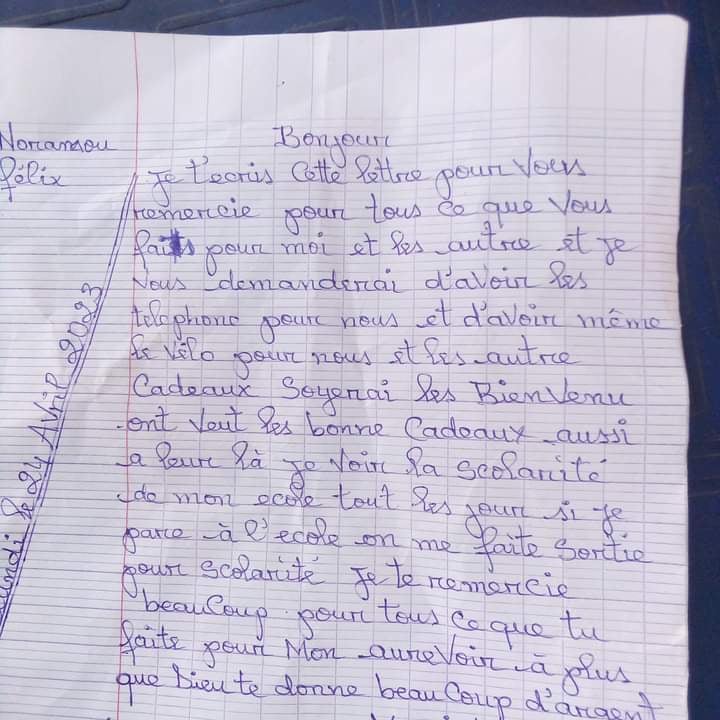 Bonjour
Noramou
Félix
Je t'ecris Cette lettre pour Vous
remercie pour tous ce que Vous
faits pour moi et les autre et je
Vous demanderai d'avoir les
telephone pour nous et d'avoir même
le Vélo pour nous et les autre
Cadeaux Soyerai les BienVenu
ont Veut les bonne Cadeaux aussi
a leur là je Voir la scolarité
de mon ecole tout les jour si je
pare à l'ecole on me faite Sortie
pour scolarité Je te remercie
beauCoup pour tous ce que tu
faite pour Mon aureVoir à plus
que Dieu te donne beauCoup d'argent
Lundi le 24 AVril 2023